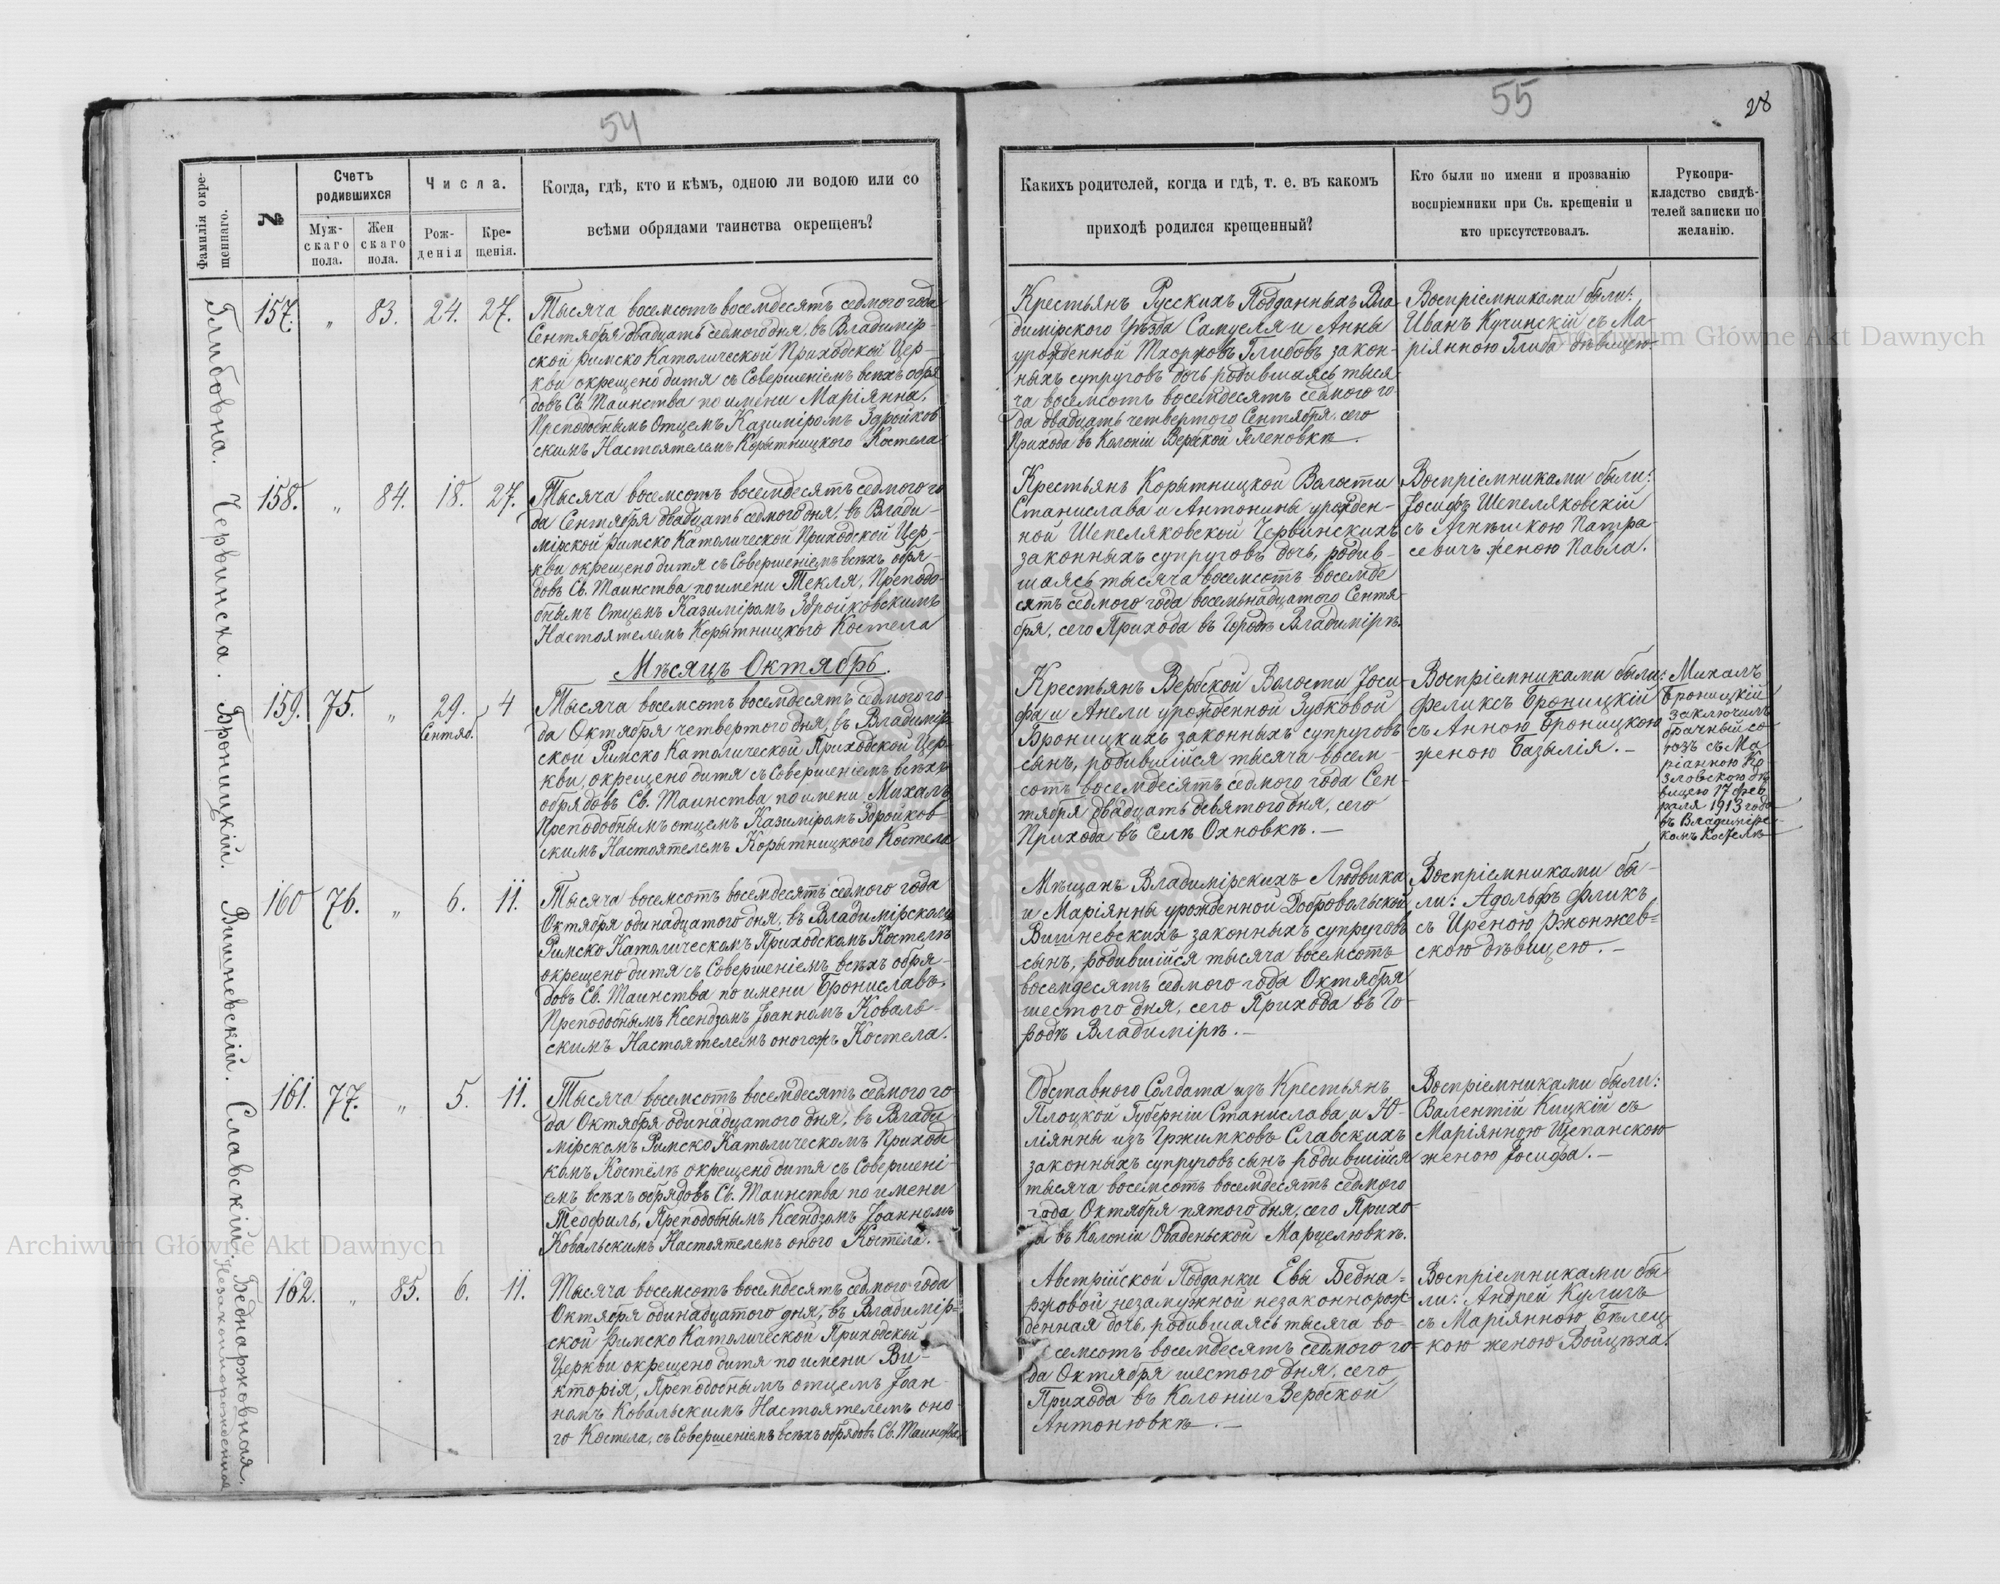 54
Фамилія окре-
щеннаго.
№
Счетъ
родившихся
Муж-
скаго
пола.
Жен
скаго
пола.
Числа.
Рож-
денія
Кре-
щенія.
Когда, гдѣ, кто и кѣмъ, одною ли водою или со
всѣми обрядами таинства окрещенъ?
Глибовна.
157.
"
83.
24.
27.
Тысяча восемсотъ восемдесятъ седмого года
Сентября двадцать седмого дня, въ Владимір-
ской Римско Католической Приходской Цер-
кви окрещено дитя съ Совершеніемъ всѣхъ обря
довъ Св. Таинства по имени Маріянна,
Преподобнымъ Отцемъ Казиміромъ Здройков
скимъ Настоятелемъ Корытницкого Костела
Червинска.
158.
"
84.
18.
27.
Тысяча восемсотъ восемдесятъ седмого го
да Сентября двадцать седмого дня, въ Влади-
мірской Римско Католической Приходской Цер-
кви окрещено дитя съ Совершеніемъ всѣхъ обря-
довъ Св. Таинства по имени Текля, Преподо-
бнымъ Отцемъ Казиміромъ Здройковскимъ
Настоятелемъ Корытницкого Костела
Мѣсяцъ Октябрь.
Броницкій.
159.
75.
"
29.
Сентяб.
4
Тысяча восемсотъ восемдесятъ седмого го-
да Октября четвертого дня, въ Владимір-
ской Римско Католической Приходской Цер-
кви, окрещено дитя съ Совершеніемъ всѣхъ
обрядовъ Св. Таинства по имени Михалъ
Преподобнымъ отцемъ Казиміромъ Здройков
скимъ Настоятелемъ Корытницкого Костела
Вишневскій.
160
76.
"
6.
11.
Тысяча восемсотъ восемдесятъ седмого года
Октября одинадцатого дня, въ Владимірскомъ
Римско Католическомъ Приходскомъ Костелѣ
окрещено дитя съ Совершеніемъ всѣхъ обря-
довъ Св. Таинства по имени Брониславъ,
Преподобнымъ Ксендзомъ Іоанномъ Коваль-
скимъ Настоятелемъ оногожъ Костела.
Славскій.
161.
77.
"
5.
11.
Тысяча восемсотъ восемдесятъ седмого го
да Октября одинадцатого дня, въ Влади
мірскомъ Римско Католическомъ Приход
комъ Костелѣ окрещено дитя съ Совершені-
емъ всѣхъ обрядовъ Св. Таинства по имени
Теофиль, Преподобнымъ Ксендзомъ Іоанномъ
Ковальскимъ Настоятелемъ оного Костела.-
Беднаржовная.
Незаконнорожденна
162.
"
85.
6.
11.
Тысяча восемсотъ восемдесятъ седмого года
Октября одинадцатого дня, въ Владимір=
ской Римско Католической Приходской
Церкви окрещено дитя по имени Ви-
кторія, Преподобнымъ отцемъ Іоан-
номъ Ковальскимъ Настоятелемъ оно-
го Костела, съ Совершеніемъ всѣхъ обрядовъ Св. Таинства
55
28
Какихъ родителей, когда и гдѣ, т. е. въ какомъ
приходѣ родился крещенный?
Кто были по имени и прозванію
воспріемники при Св. крещеніи и
кто присутствовалъ.
Рукопри-
кладство свидѣ-
телей записки по
желанію.
Крестьянъ Русскихъ Подданныхъ Вла-
димірского Уѣзда Самуеля и Анны
урожденной Тхоржовъ Глибовъ закон-
ныхъ супруговъ дочь родившаясь тыся
ча восемсотъ восемдесятъ седмого го-
да двадцать четвертого Сентября, сего
Прихода въ Колоніи Вербской Геленовкѣ.
Воспріемниками были:
Иванъ Кучинскій съ Ма-
ріянною Глиба дѣвицею
Крестьянъ Корытницкой Волости
Станислава и Антонины урожден-
ной Шепеляковской Червинскихъ
законныхъ супруговъ дочь, родив-
шаясь тысяча восемсотъ восемде
сятъ седмого года восемьнадцатого Сентя-
бря, сего Прихода въ Городѣ Владимірѣ.
Воспріемниками были:
Іосифъ Шепеляковскій
съ Агнѣшкою Патра-
севичъ женою Павла.
Крестьянъ Вербской Волости Іоси-
фа и Анели урожденной Зубковой
Броницкихъ законныхъ супруговъ
сынъ, родившійся тысяча восем-
сотъ восемдесятъ седмого года Сен-
тября двадцать девятого дня, сего
Прихода въ Селѣ Охновкѣ.-
Воспріемниками были:
Феликсъ Броницкій
съ Анною Броницкою
женою Базылія.-
Михалъ
Броницкій
заключилъ
брачный со
юзъ съ Ма
ріанною Ко
зловскою дѣ
вицею 17 фев
раля 1913 года
въ Владимірс
комъ Костелѣ
Мѣщанъ Владимірскихъ Людвика
и Маріянны урожденной Добровольской
Вишневскихъ законныхъ супруговъ
сынъ, родившійся тысяча восемсотъ
восемдесятъ седмого года Октября
шестого дня, сего Прихода въ Го-
родѣ Владимірѣ.-
Воспріемниками бы-
ли: Адольфъ Фликъ
съ Иреною Ржонжев-
скою дѣвицею.-
Отставного Солдата изъ Крестьянъ
Плоцкой Губерніи Станислава и Ю-
ліянны изъ Гржимковъ Славскихъ
законныхъ супруговъ сынъ родившійся
тысяча восемсотъ восемдесятъ седмого
года Октября пятого дня, сего Прихо-
да въ Колоніи Оваденьской Марцелювкѣ.
Воспріемниками были:
Валентій Кицкій съ
Маріянною Щепанскою
женою Іосифа.-
Австрійской Подданки Евы Бедна-
ржовой незамужной незаконнорож-
денная дочь, родившаясь тысяча во-
семсотъ восемдесятъ седмого го-
да Октября шестого дня, сего
Прихода въ Колоніи Вербской
Антонювкѣ.-
Воспріемниками бы
ли: Андрей Кулигъ
съ Маріянною Бѣлец-
кою женою Войцѣха.
Archiwum Główne Akt Dawnych
Archiwum Główne Akt Dawnych